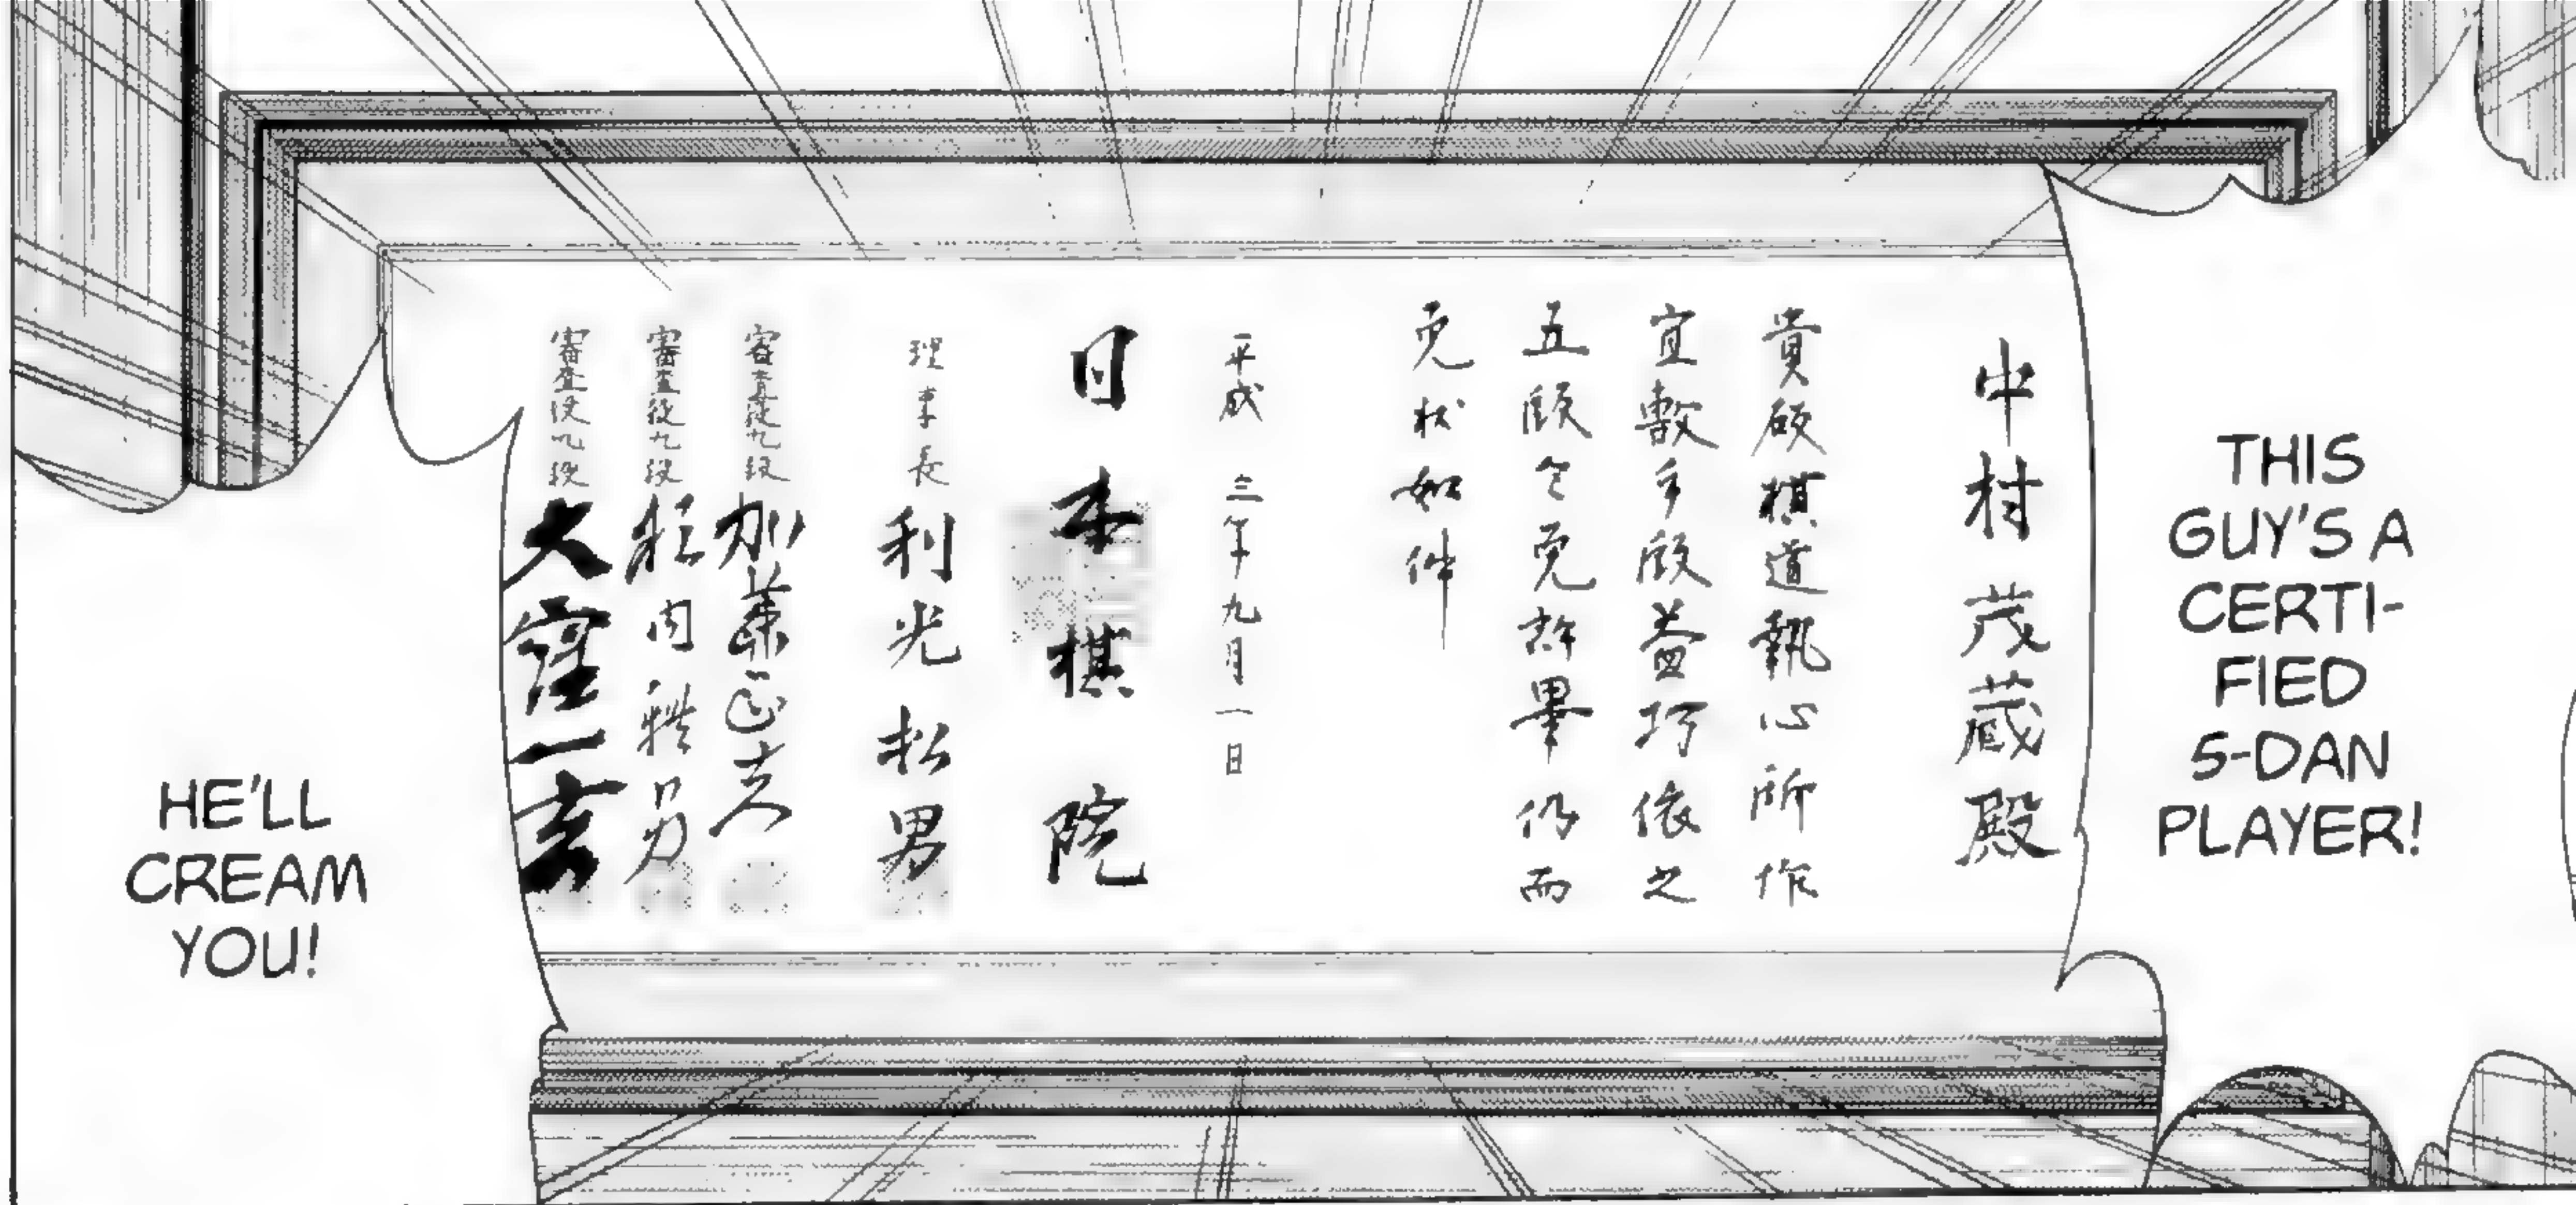 THIS
GUY'S A
CERTI-
FIED
5-DAN
PLAYER!
中村茂蔵殿
貴殿棋道執心所作
宜敷手段益巧依之
五段令免許畢仍而
免状如件
平成三年九月一日
日本棋院
理事長 利光松男
審査役九段 加藤正夫
審査役九段 杉内雅男
審査役九段 大窪一玄
HE'LL
CREAM
YOU!